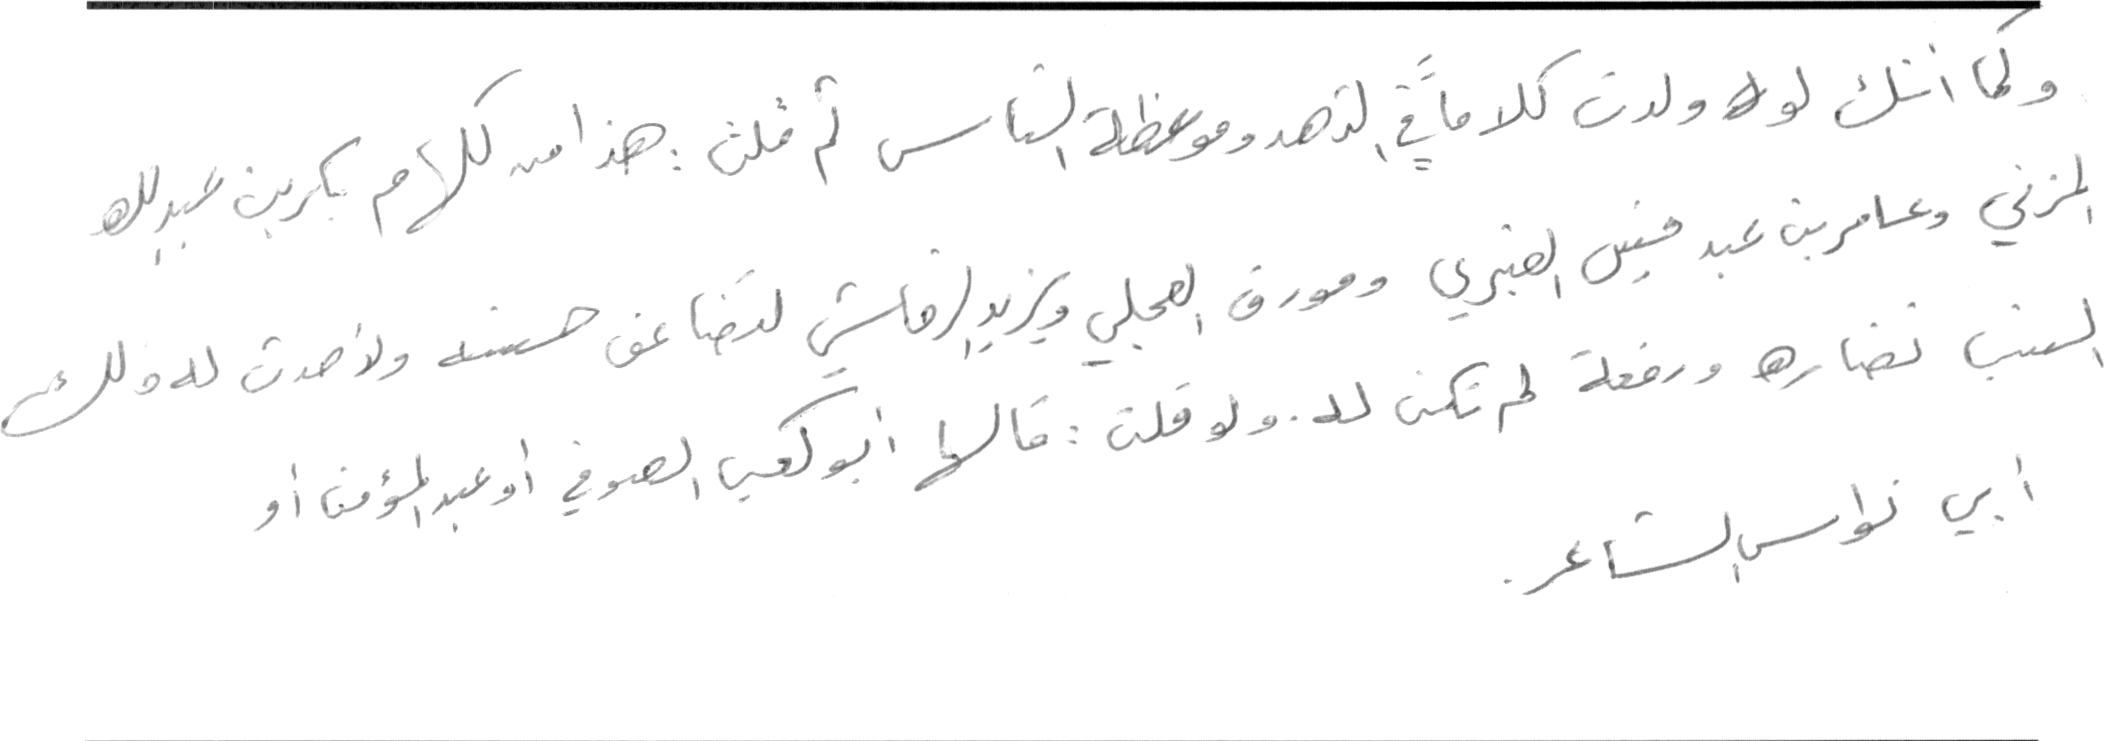 وكما أنك لو ولدت كلاماً في الزهد وموعظة الناس ثم قلت: هذا من كلام بكر بن عبد الله
المزني وعامر بن عبد قيس العنبري ومورق العجلي ويزيد الرقاشي لتضاعف حسنه ولأحدث له ذلك
النسب نضاره ورفعة لم تكن له. ولو قلت: قالها أبو كعب الصوفي أو عبد المؤمن أو
أبي نواس الشاعر.